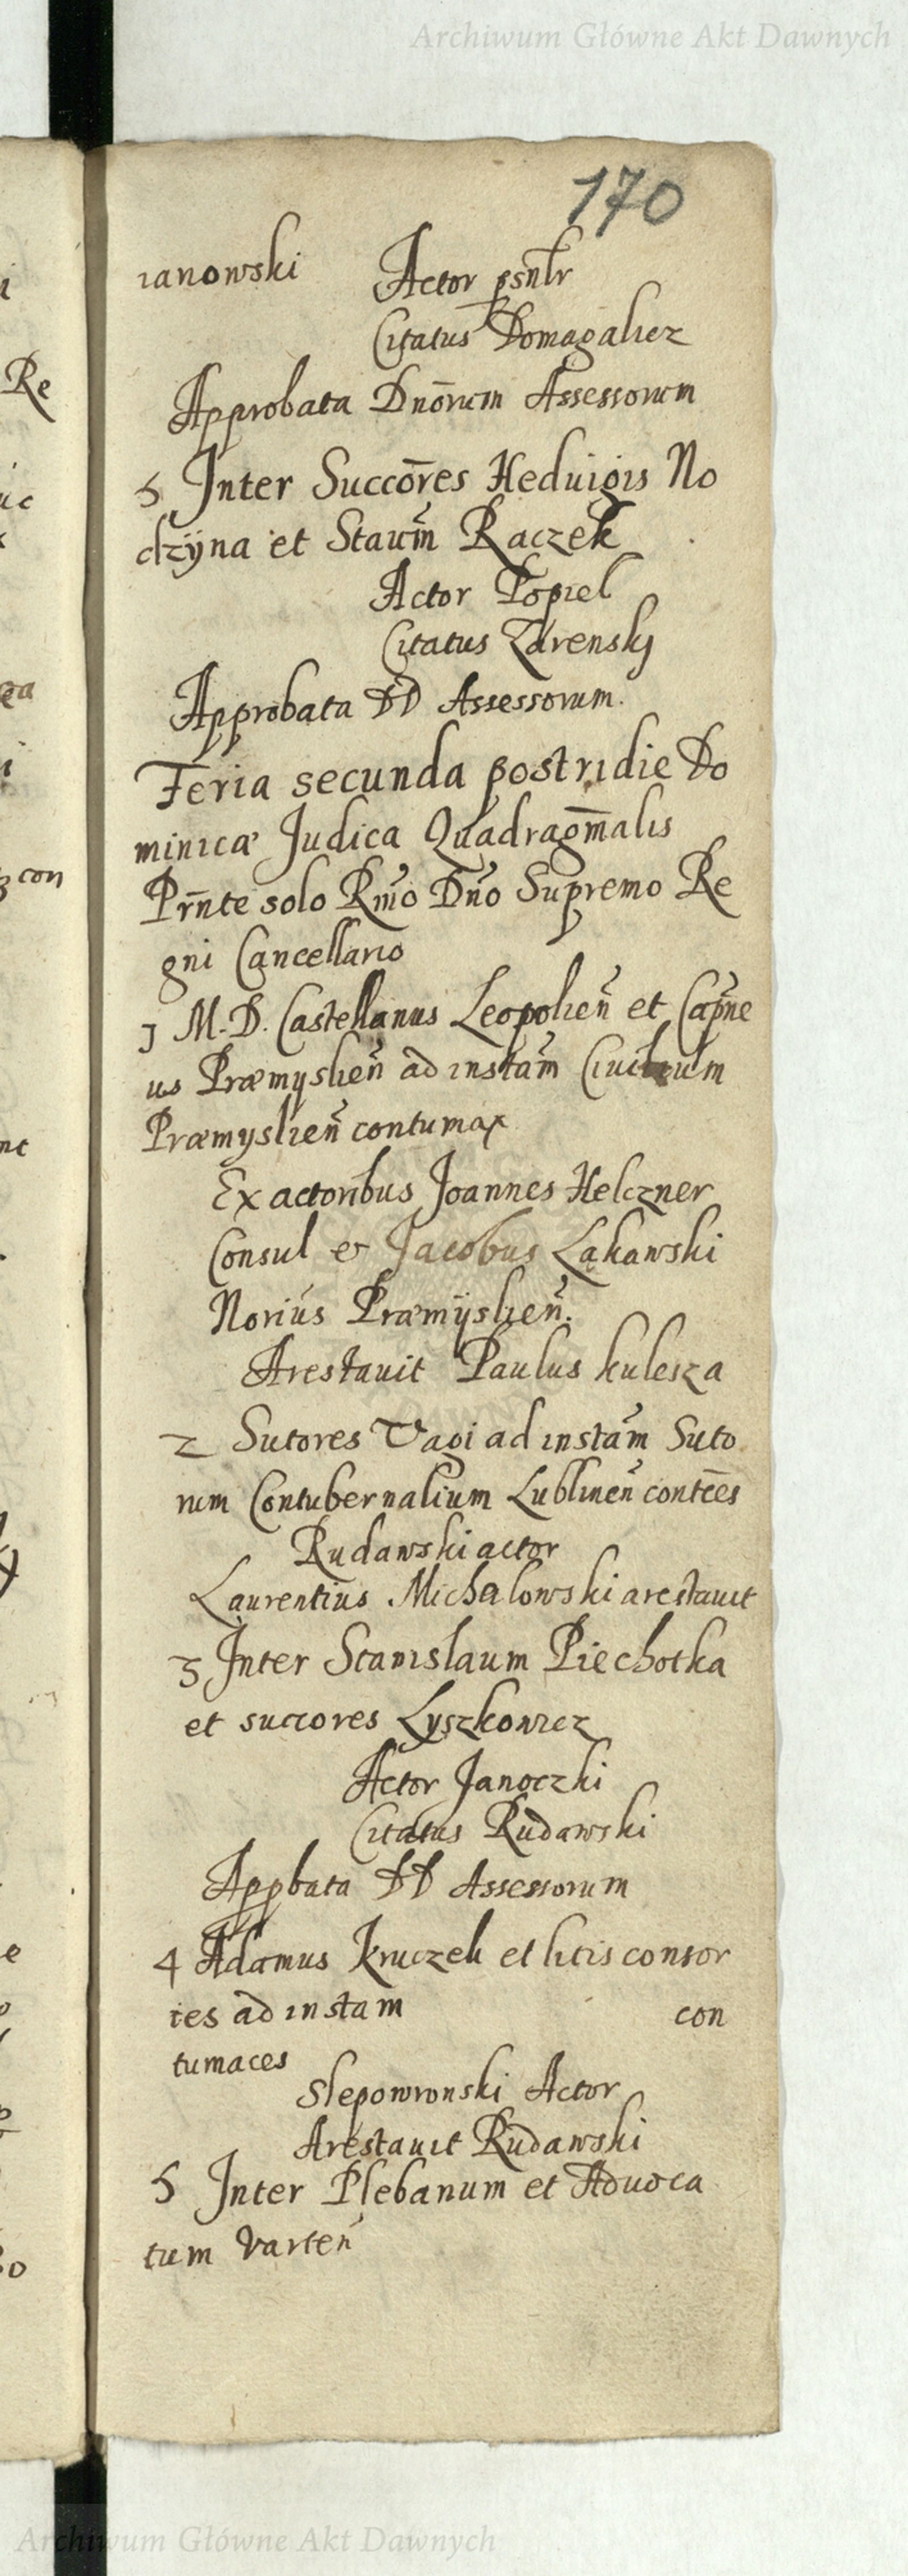 Archiwum Główne Akt Dawnych
170
ianowski Actor psnlr
Citatus Domagalicz
Approbata Dnōrum Assessorum
5 Inter Succōres Heduigis No
dzÿna et Staum̄ Raczek
Actor Popiel
Citatus Zarensky
Approbata DD Assessorum.
Feria secunda postridie Do
minicæ Judica Quadragm̄alis
Prn̄te solo Rmo Dno Supremo Re
gni Cancellario
1 M. D. Castellanus Leopolien̄ et Capne
us Præmyslien̄ ad instam̄ Ciuitatum
Præmyslien̄ contumax
Ex actoribus Joannes Helczner
Consul et Jacobus Łąkawski
Norius Præmÿslien̄.
Arestauit Paulus kulesza
2 Sutores Vagi ad instam̄ Suto
rum Contubernalium Lublinen̄ contēes
Rudawski actor
Laurentius Michalowski arestauit
3 Inter Stanislaum Piechotka
et succores Lyszkowicz
Actor Janoczki
Citatus Rudawski
Appbata DD Assessorum
4 Adamus Kruczek et litis consor
tes ad instam con
tumaces
Slepowronski Actor
Arestauit Rudawski
5 Inter Plebanum et Aduoca
tum Varten̄
Archiwum Główne Akt Dawnych